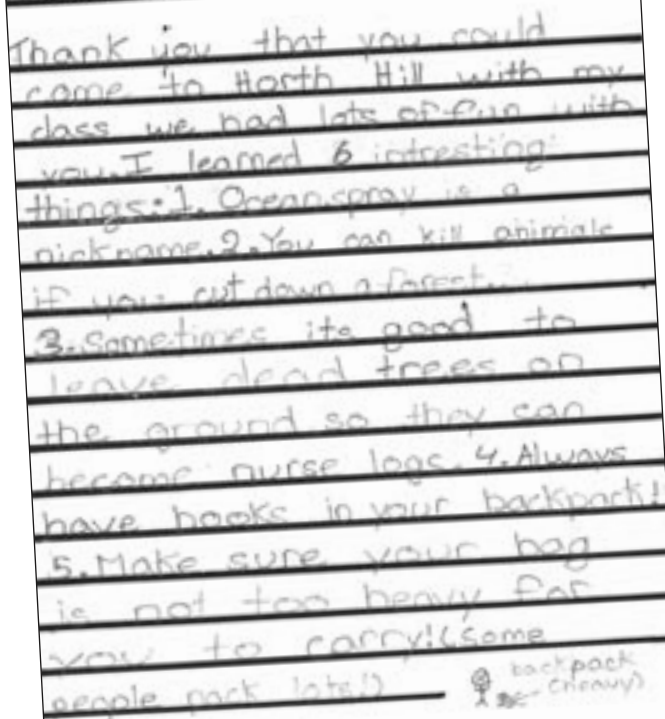 Thank you that you could
come to Horth Hill with my
class we had lots of fun with
you. I learned 6 intresting
things: 1. Oceanspray is a
nickname. 2. You can kill animals
if you cut down a forest...
3. Sometimes its good to
leave dead trees on
the ground so they can
become nurse logs. 4. Always
have books in your backpack!
5. Make sure your bag
is not too heavy for
you to carry! (some
people pack lots!)
backpack
(heavy)